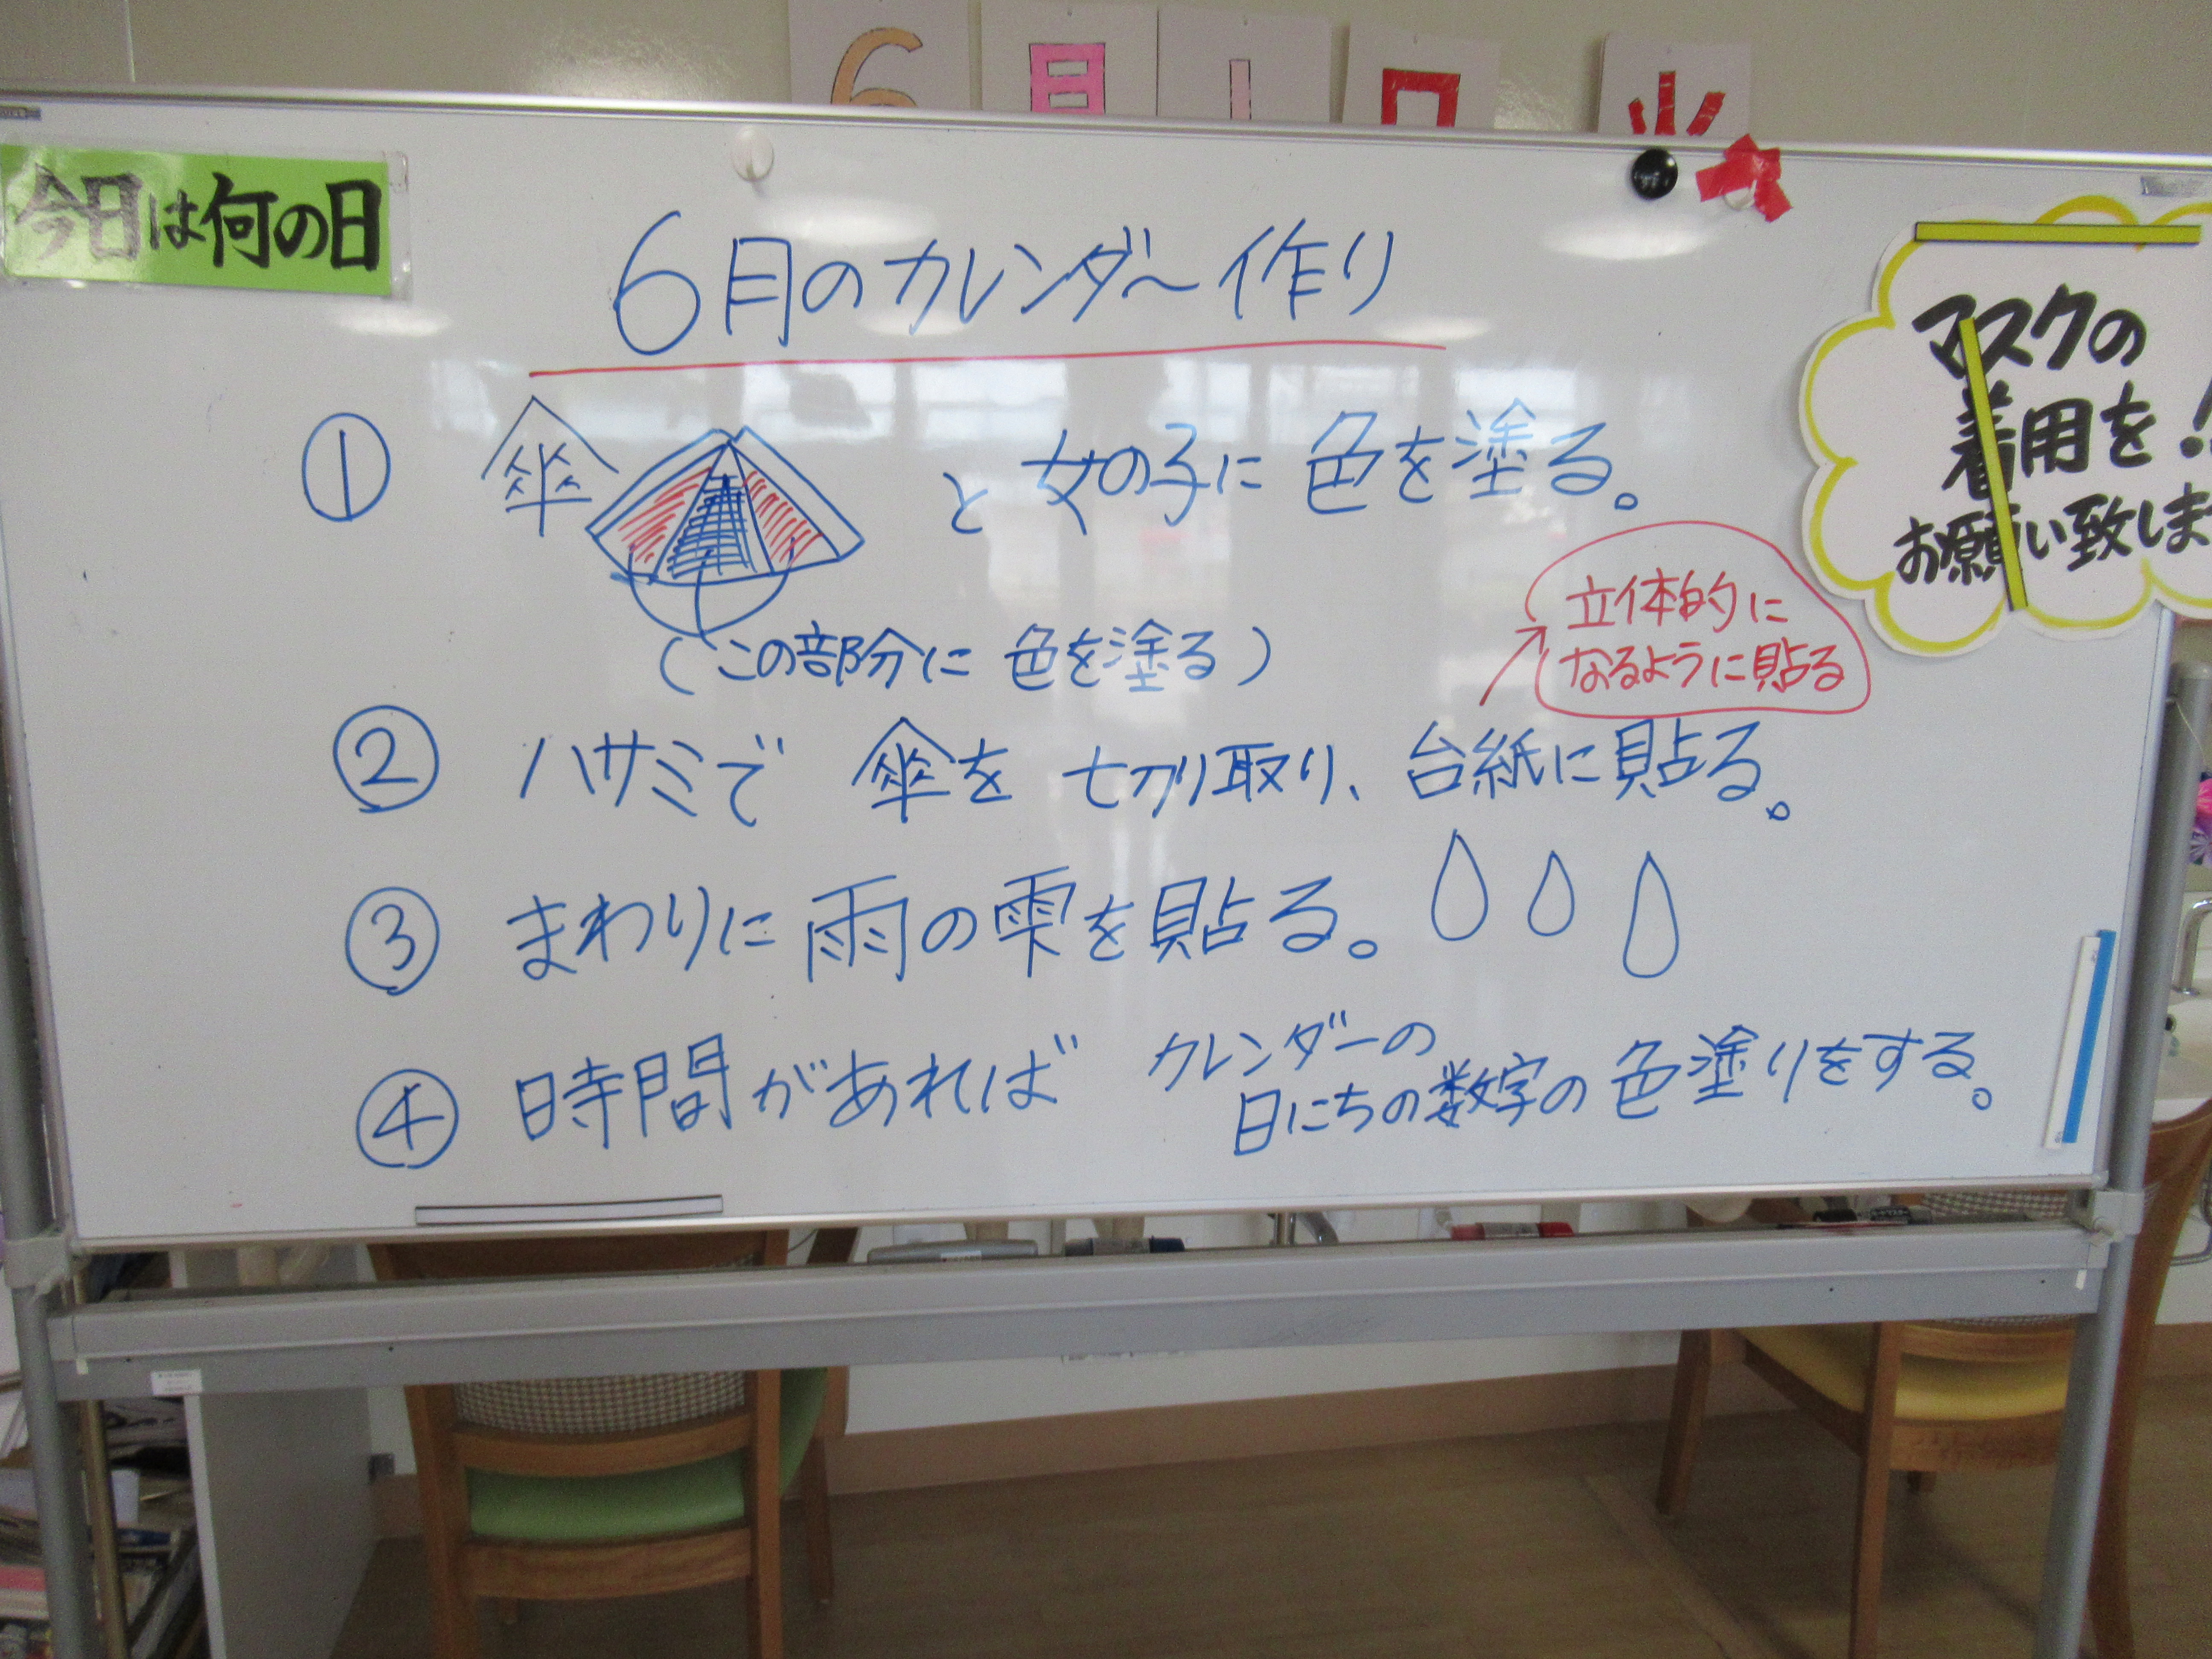 6月1日火
今日は何の日
6月のカレンダー作り
① 傘 と女の子に色を塗る。
(この部分に色を塗る)
立体的に
なるように貼る
② ハサミで 傘を 切り取り、台紙に貼る。
③ まわりに雨の雫を貼る。
④ 時間があれば カレンダーの
日にちの数字の色塗りをする。
マスクの
着用を!
お願い致しま